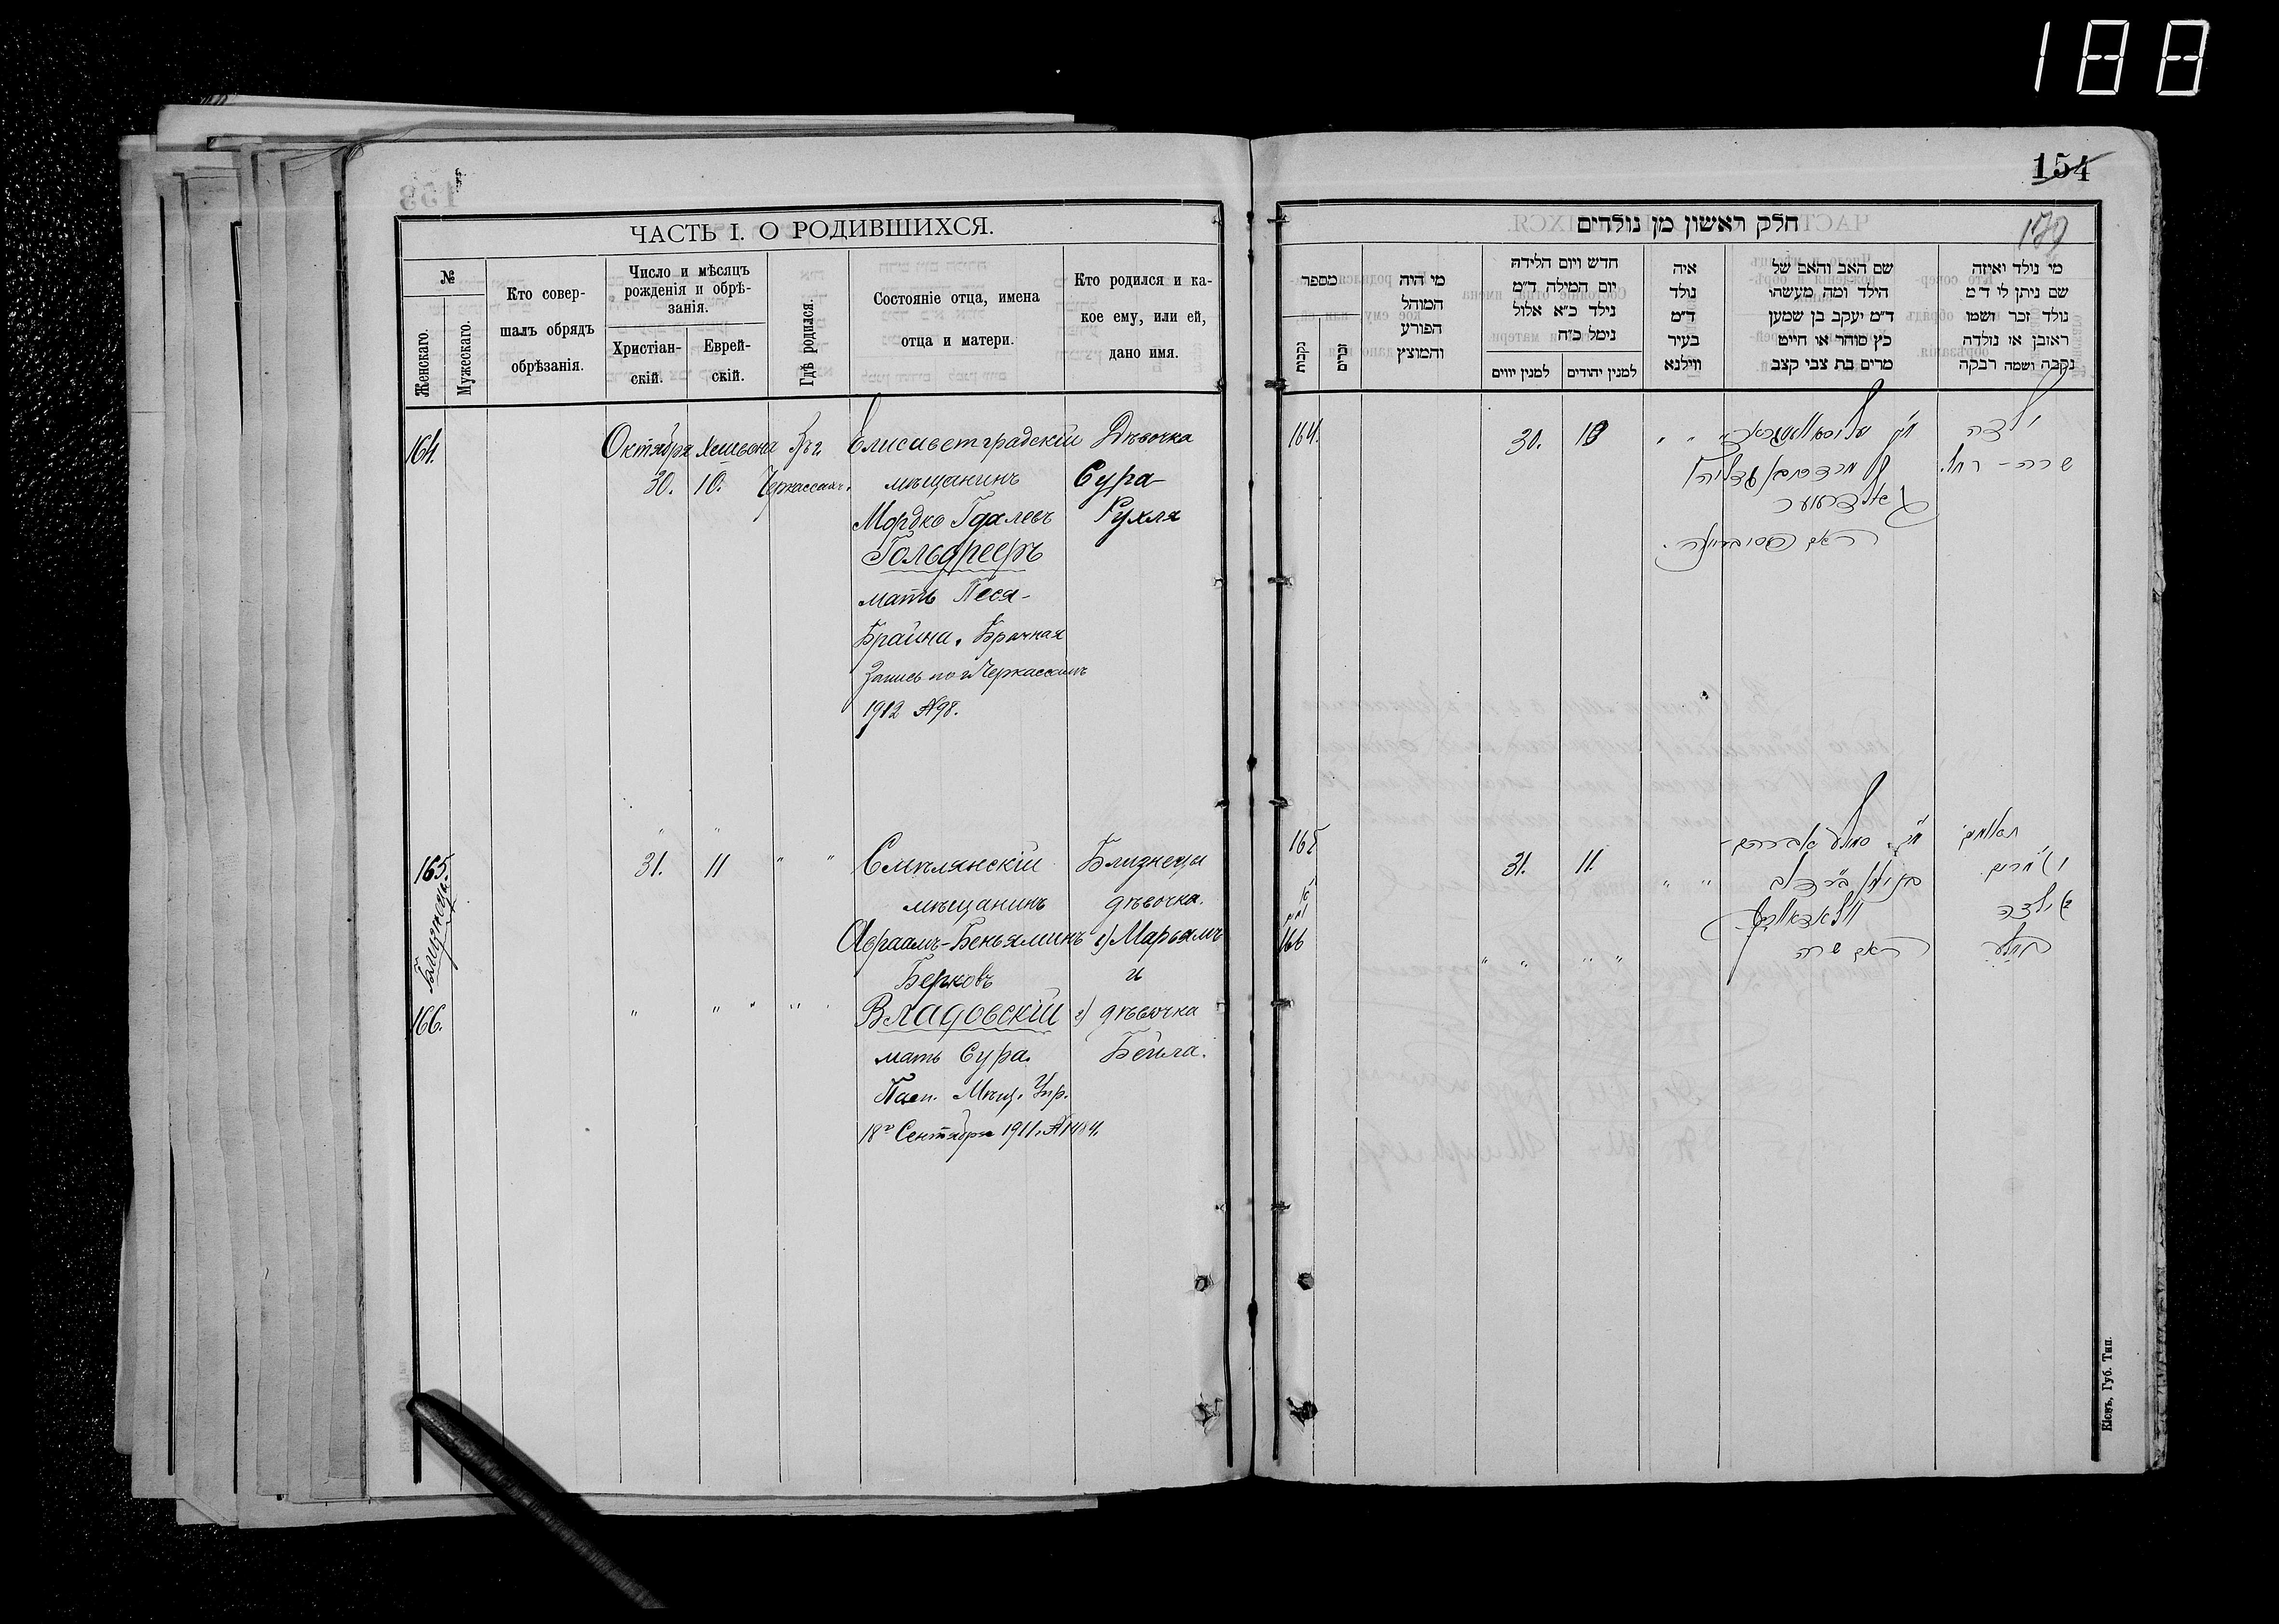 188
154
179
ЧАСТЬ I. О РОДИВШИХСЯ.
№
Женскаго.
Мужескаго.
Кто совер-
шалъ обрядъ
обрѣзанія.
Число и мѣсяцъ
рожденія и обрѣ-
занія.
Христіан-
скій.
Еврей-
скій.
Гдѣ родился.
Состояніе отца, имена
отца и матери.
Кто родился и ка-
кое ему, или ей,
дано имя.
164.
Октября Хешвона
30. 10.
Черкассахъ.
Елисаветградскій
мѣщанинъ
Мордко Гдалевъ
Гольдрееръ
мать Песя-
Брайна. Брачная
Запись по г. Черкассамъ
1912 №98.
Дѣвочка
Сура-
Рухля
165.
Близнецы.
166.
31. 11 " "
Смѣлянскій
мѣщанинъ
Авраамъ-Беньяминъ
Берковъ
Владовскій
мать Сура.
Пасп. Мѣщ. Упр.
18го Сентября 1911. №1484.
Близнецы
дѣвочка.
1) Марьямъ
и
2) дѣвочка
Бейла.
חלק ראשון מן נולדים
מספר
נקבות
זכרים
מי היה
המוהל
הפורע
והמוצץ
חדש ויום הלידה
יום המילה ד״מ
נילד כ״א אלול
נימל כ״ח
למנין יווים
למנין יהודים
איה
נולד
ד״מ
בעיר
ווילנא
שם האב והאם של
הילד ומה מעשהו
ד״מ יעקב בן שמען
כץ סוחר או חייט
מרים בת צבי קצב
מי נולד ואיזה
שם ניתן לו ד״מ
נולד זכר ושמו
ראובן או נולדה
נקבה ושמה רבקה
164.
30. 10
ילדה
שרה - רחל.
165
166
31. 11.
תאומים
ילדה
האם שרה
Кіевъ, Губ. Тип.